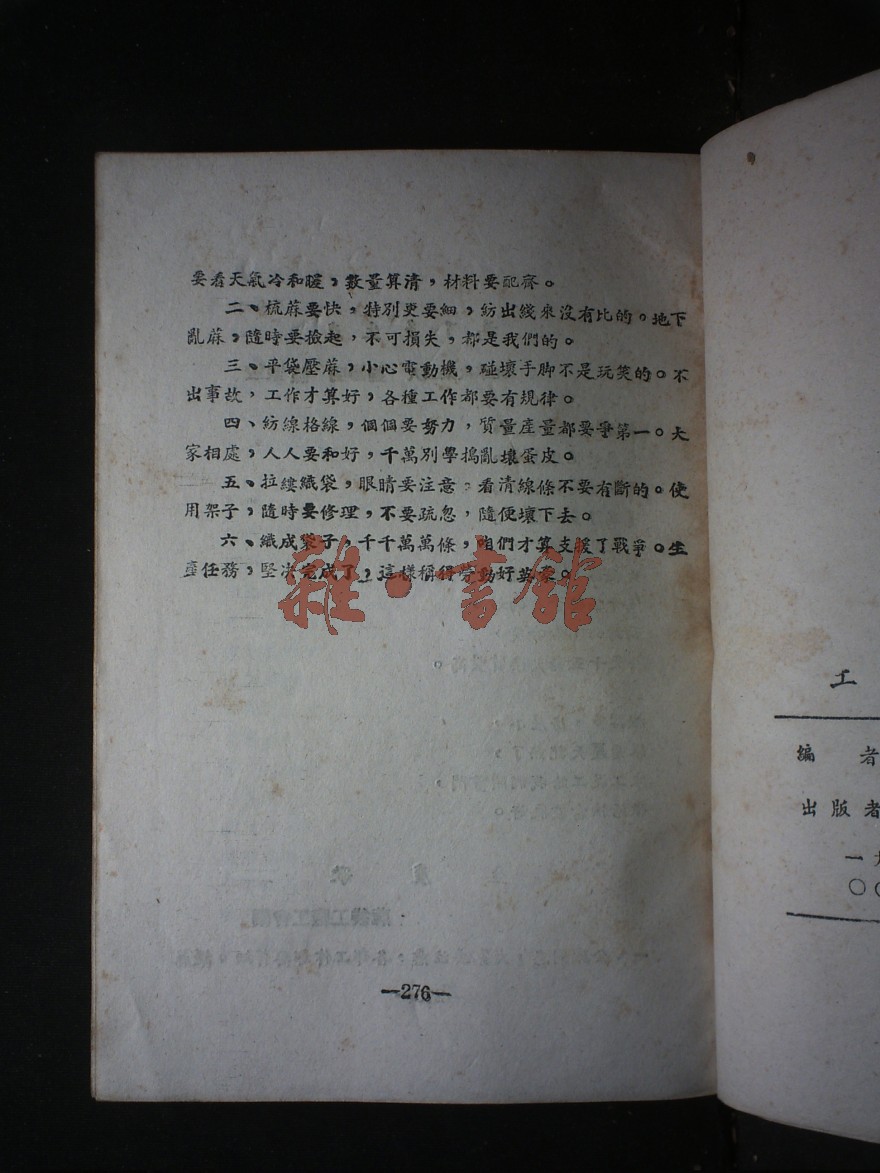 要看天氣冷和暖，數量算清，材料要配齊。
二、梳蔴要快，特別更要細，紡出綫來沒有比的。地下
亂蔴，隨時要撿起，不可損失，都是我們的。
三、平袋壓蔴，小心電動機，碰壞手脚不是玩笑的。不
出事故，工作才算好，各種工作都要有規律。
四、紡線格線，個個要努力，質量產量都要爭第一。大
家相處，人人要和好，千萬別學搗亂壞蛋皮。
五、拉縷織袋，眼睛要注意，看清線條不要有斷的。使
用架子，隨時要修理，不要疏忽，隨便壞下去。
六、織成袋子，千千萬萬條，咱們才算支援了戰爭。生
產任務，堅决完成了，這樣稱得勞動好英豪。
雜·書館
—276—
工
編者
出版者
一九
〇〇